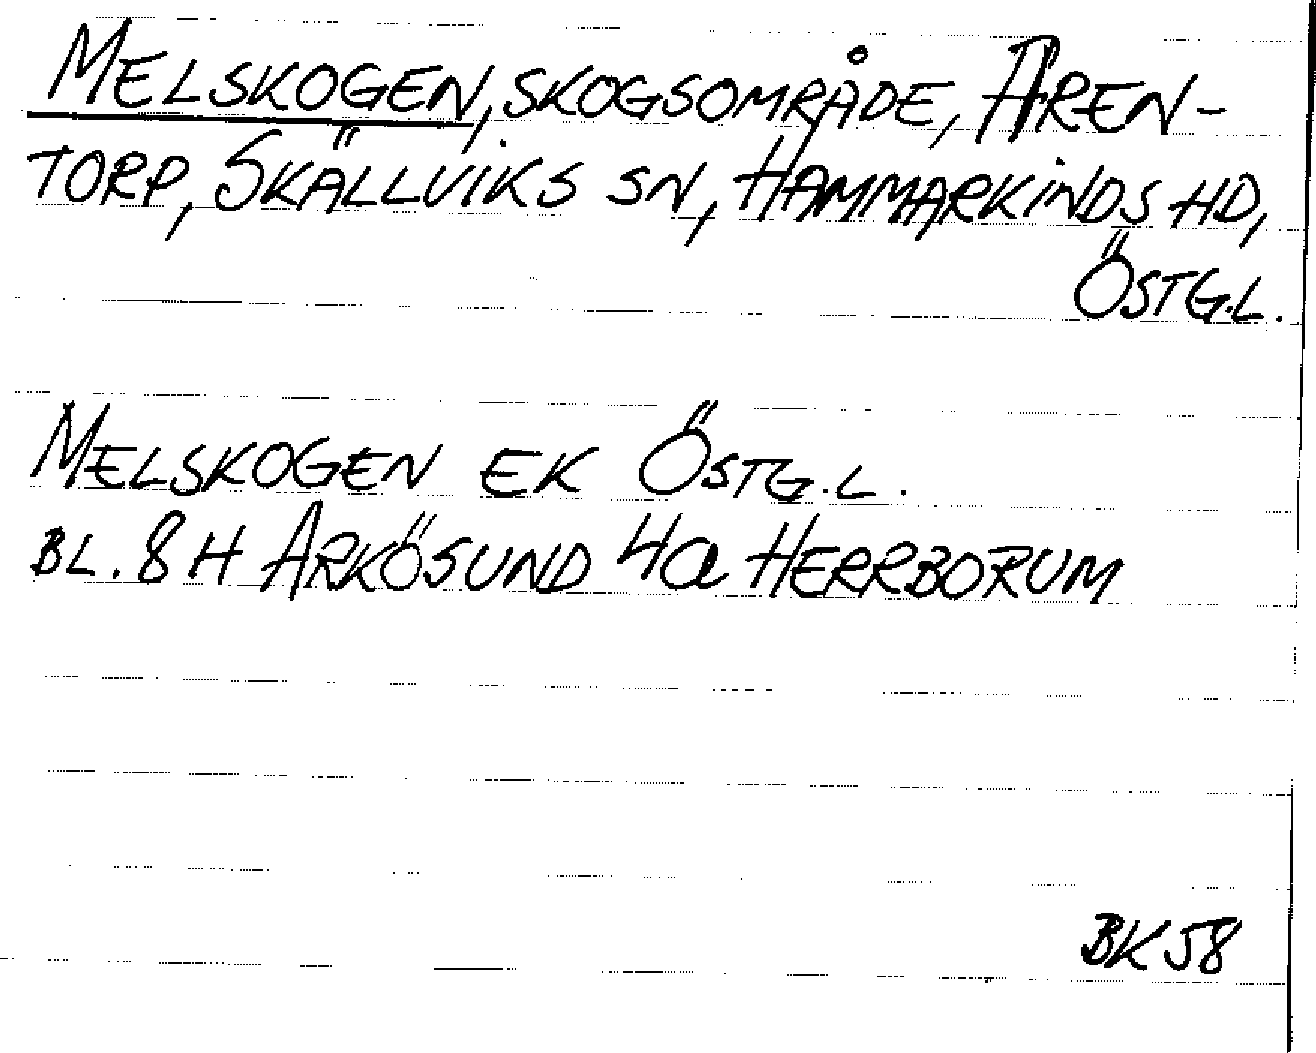 MELSKOGEN, SKOGSOMRÅDE, ÅREN-
TORP, SKÄLLVIKS SN, HAMMARKINDS HD,
ÖSTG.L.
MELSKOGEN EK ÖSTG.L.
BL. 8 H ARKÖSUND 4a HERRBORUM
BK 58